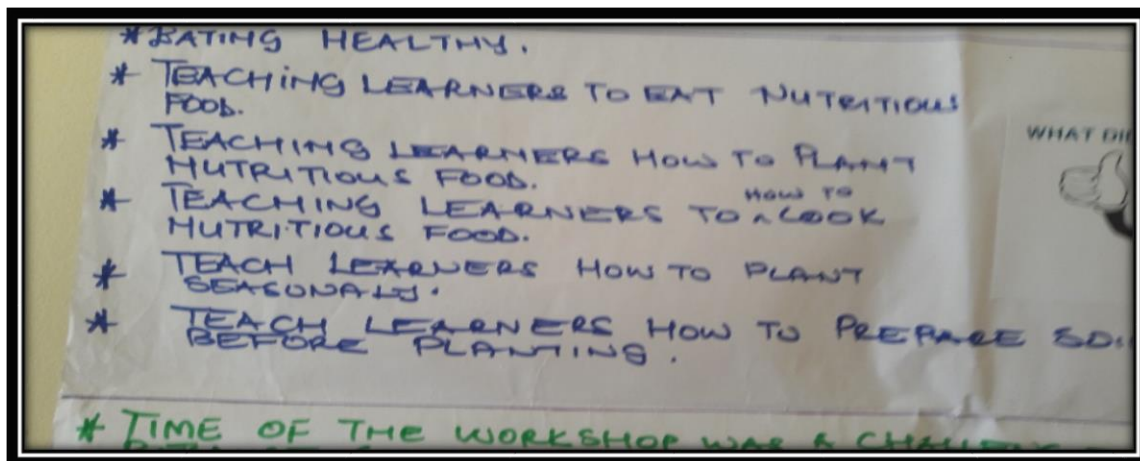 * EATING HEALTHY.
* TEACHING LEARNERS TO EAT NUTRITIOUS
FOOD.
WHAT
* TEACHING LEARNERS HOW TO PLANT
NUTRITIOUS FOOD.
HOW TO
* TEACHING LEARNERS TO ^ COOK
NUTRITIOUS FOOD.
* TEACH LEARNERS HOW TO PLANT
SEASONALY.
* TEACH LEARNERS HOW TO PREPARE
BEFORE PLANTING.
* TIME OF THE WORKSHOP WAS A